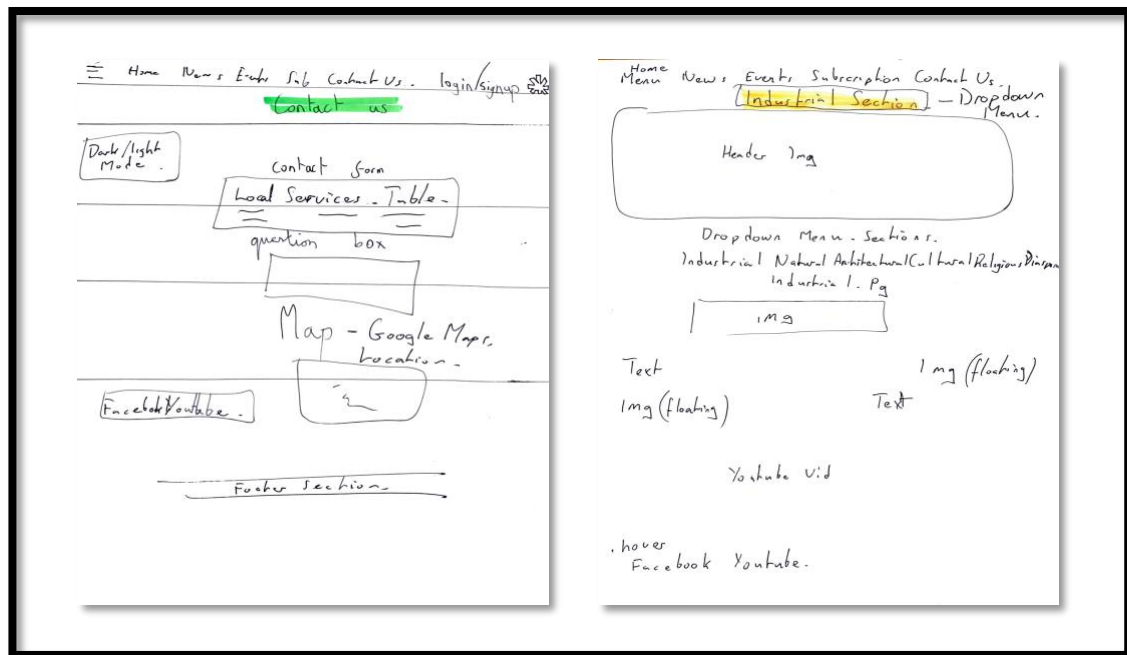 Home News Events Sub Contact Us. login/signup
Contact us
Dark/light
Mode.
Contact form
Local Services - Table -
question box
Map - Google Maps,
Location.
Facebook/Youtube.
Footer Section
Home
Menu News Events Subscription Contact Us.
Industrial Section - Dropdown
Menu.
Header Img
Dropdown Menu. Sections.
Industrial Natural Architectural Cultural Religious Diaspora
Industrial. Pg
IMg
Text Img (floating)
Img (floating) Text
Youtube Vid
. hover
Facebook Youtube.